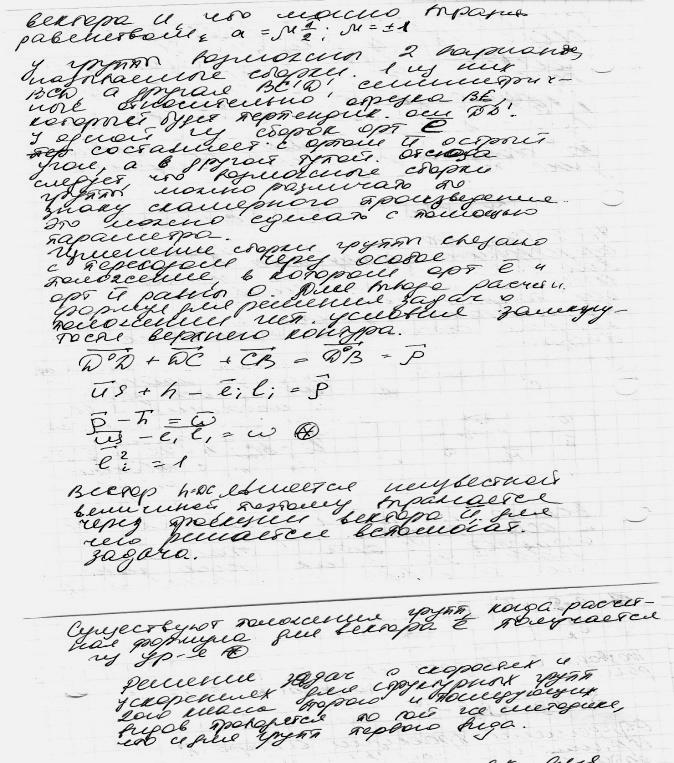 вектора и, что можно выразить
равенством, a = м 2/2; м = ±1
У группы возможны 2 варианта,
называемые сборки. 1 из них
BCD, а другая BC'D', симметрич-
ные относительно отрезка BE,
который будет перпендик. оси DD'.
У одной из сборок орт e
составляет с ортом u острый
угол, а в другой тупой. Отсюда
следует что возможные сборки
группы можно различать по
знаку скалярного произведение.
Это можно сделать с помощью
параметра.
Изменение сборки группы связано
с переходом через особое
положение, в котором орт e и
орт u равны 0. Для вывода расчётн.
формул для решения задач о
положении исп. условия замкну-
тости верхнего контура.
D°D + DC + CB = D°B = ρ
us + h – e₁l₁ = ρ
ρ – h = ω
us – e₁l₁ = ω ⊛
e₁² = 1
Вектор h=DC является неизвестной
величиной поэтому выражается
через проекции вектора u, для
чего решается вспомогат.
задача.
Существуют положения групп, когда расчёт-
ная формула для вектора e получается
из ур-я
Решение задач о скоростях и
ускорениях для структурных групп
2ого класса второго и последующих
видов проводятся по той же методике,
что и для групп первого вида.